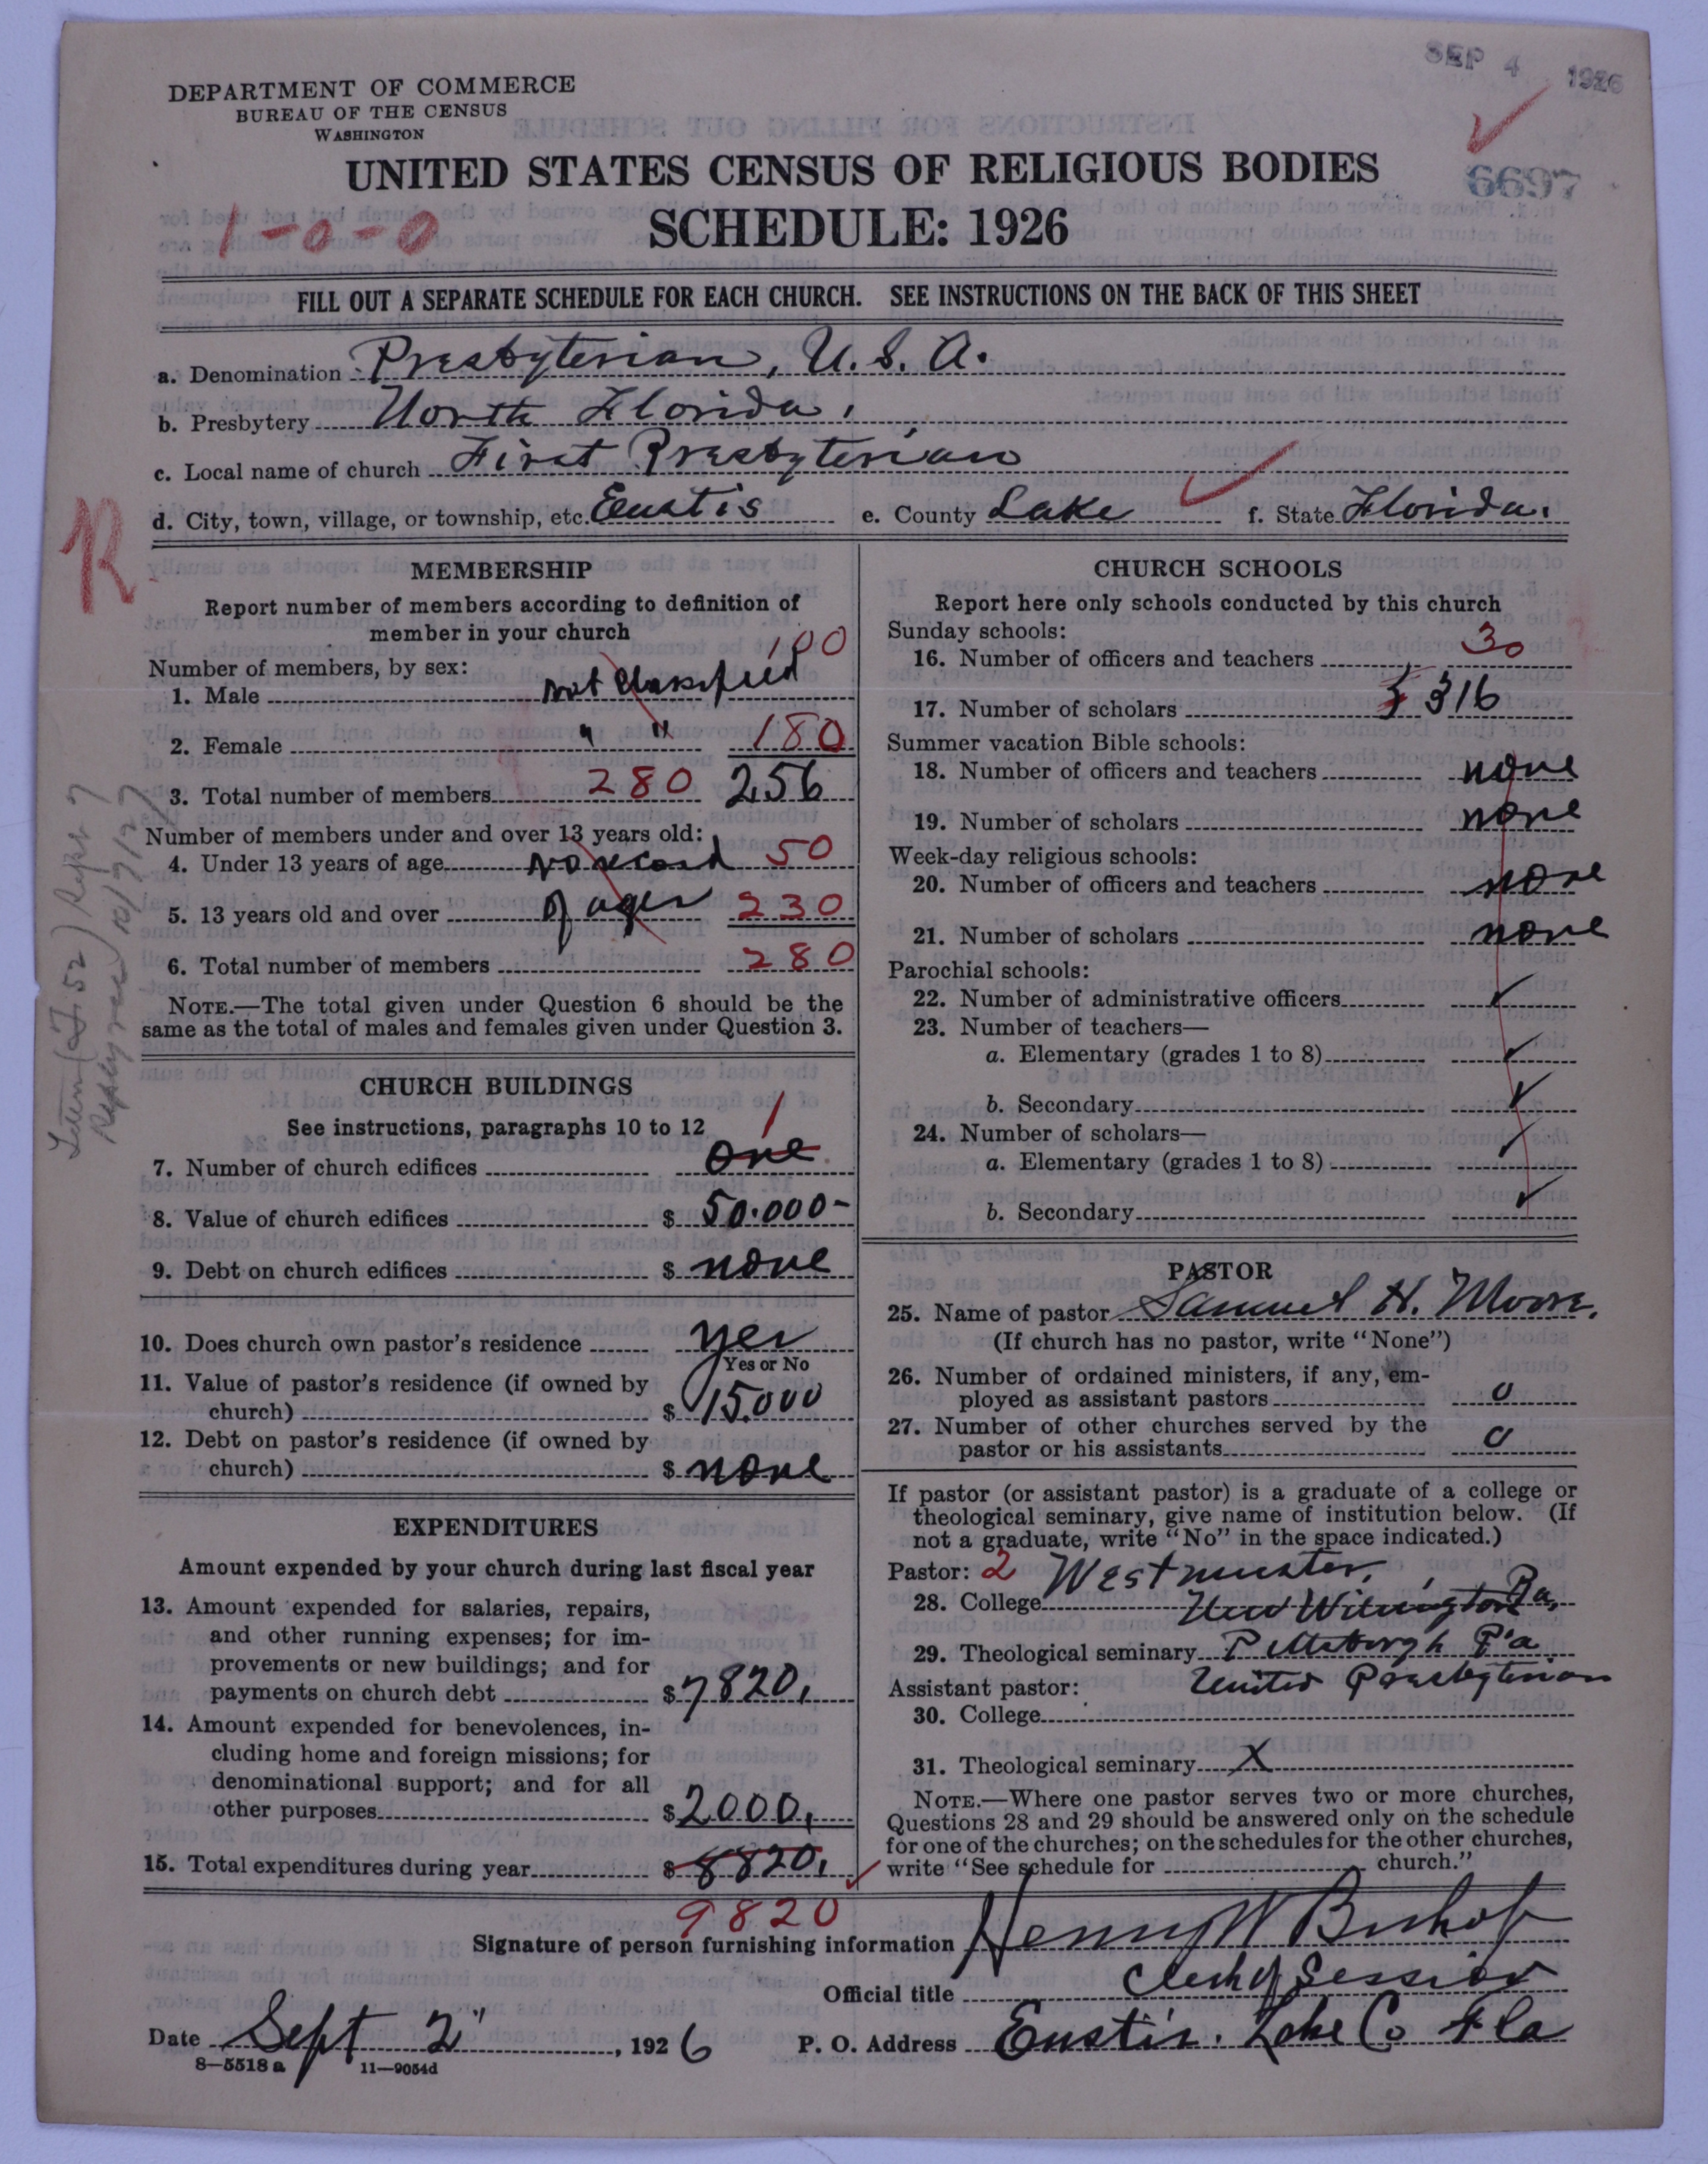 SEP 4 1926
DEPARTMENT OF COMMERCE
BUREAU OF THE CENSUS
WASHINGTON
UNITED STATES CENSUS OF RELIGIOUS BODIES
6697
1-0-0
SCHEDULE: 1926
FILL OUT A SEPARATE SCHEDULE FOR EACH CHURCH. SEE INSTRUCTIONS ON THE BACK OF THIS SHEET
a. Denomination Presbyterian, U.S.A.
b. Presbytery North Florida.
c. Local name of church First Presbyterian
d. City, town, village, or township, etc. Eustis e. County Lake f. State Florida.
R
MEMBERSHIP
Report number of members according to definition of
member in your church
Number of members, by sex: 100
1. Male not classified
2. Female " " 180
3. Total number of members 280 256
Number of members under and over 13 years old:
4. Under 13 years of age No record 50
5. 13 years old and over of ages 230
6. Total number of members 280
NOTE.—The total given under Question 6 should be the
same as the total of males and females given under Question 3.
CHURCH BUILDINGS
See instructions, paragraphs 10 to 12 1
7. Number of church edifices one
8. Value of church edifices $ 50.000-
9. Debt on church edifices $ none
10. Does church own pastor's residence yes
Yes or No
11. Value of pastor's residence (if owned by
church) $ 15.000
12. Debt on pastor's residence (if owned by
church) $ none
EXPENDITURES
Amount expended by your church during last fiscal year
13. Amount expended for salaries, repairs,
and other running expenses; for im-
provements or new buildings; and for
payments on church debt $ 7820.
14. Amount expended for benevolences, in-
cluding home and foreign missions; for
denominational support; and for all
other purposes $ 2000.
15. Total expenditures during year $ 8820.
9820
CHURCH SCHOOLS
Report here only schools conducted by this church
Sunday schools:
16. Number of officers and teachers 30
17. Number of scholars 316
Summer vacation Bible schools:
18. Number of officers and teachers none
19. Number of scholars none
Week-day religious schools:
20. Number of officers and teachers none
21. Number of scholars none
Parochial schools:
22. Number of administrative officers
23. Number of teachers—
a. Elementary (grades 1 to 8)
b. Secondary
24. Number of scholars—
a. Elementary (grades 1 to 8)
b. Secondary
PASTOR
25. Name of pastor Samuel H. Moore.
(If church has no pastor, write "None")
26. Number of ordained ministers, if any, em-
ployed as assistant pastors 0
27. Number of other churches served by the
pastor or his assistants 0
If pastor (or assistant pastor) is a graduate of a college or
theological seminary, give name of institution below. (If
not a graduate, write "No" in the space indicated.)
Pastor: 2 Westminster,
28. College New Wilmington Pa,
29. Theological seminary Pittsburgh Pa
Assistant pastor: United Presbyterian
30. College
31. Theological seminary X
NOTE.—Where one pastor serves two or more churches,
Questions 28 and 29 should be answered only on the schedule
for one of the churches; on the schedules for the other churches,
write "See schedule for church."
Signature of person furnishing information Henry W Bishop
Official title Clerk of Session
Date Sept 2", 1926 P. O. Address Eustis. Lake Co Fla
8—5518a 11—9054d